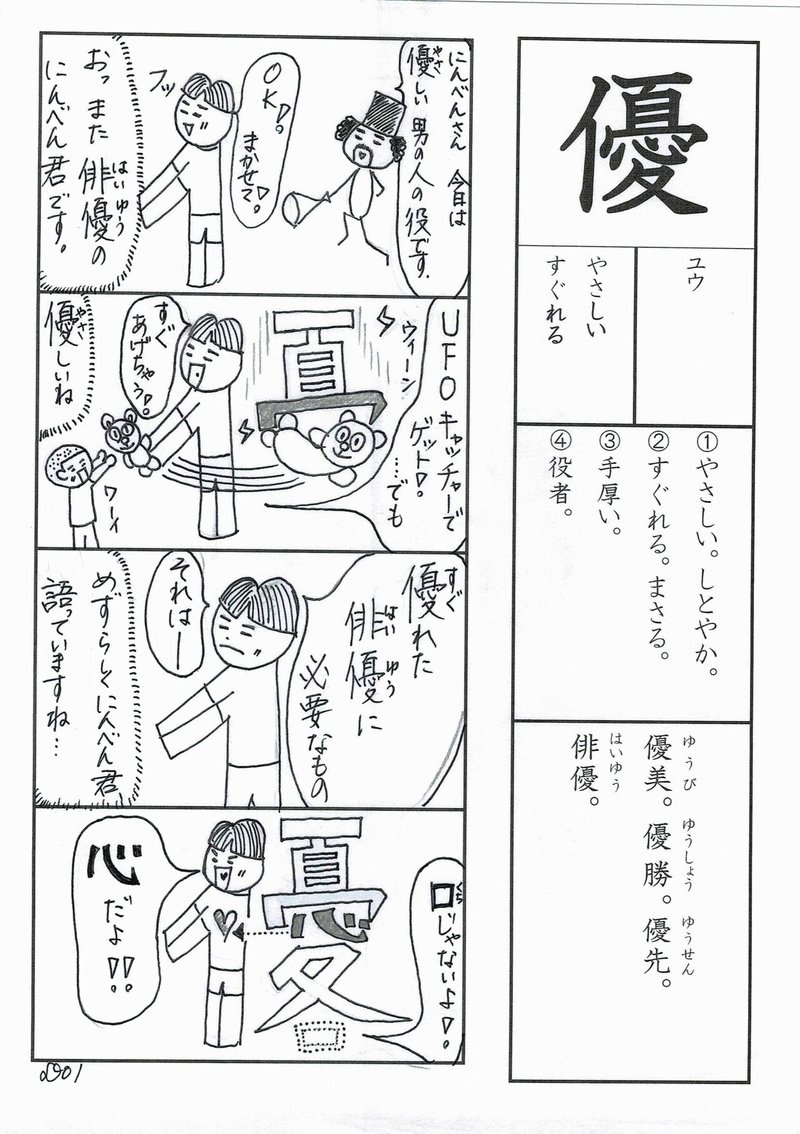 優
ユウ
やさしい
すぐれる
①やさしい。しとやか。
②すぐれる。まさる。
③手厚い。
④役者。
ゆうび ゆうしょう ゆうせん
優美。優勝。優先。
はいゆう
俳優。
にんべんさん 今日は
やさ
優しい男の人の役です。
OK!。
まかせて!。
フッ
おっ また 俳優の
はいゆう
にんべん君です。
UFOキャッチャーで
ゲット!。
…でも
ウィーン
すぐ
あげちゃう!。
ワーイ
やさ
優しいね
すぐ
優れた
はいゆう
俳優に
必要なもの
それはー
めずらしくにんべん君
語っていますね…
くち
口じゃないよ!。
心
だよ!!